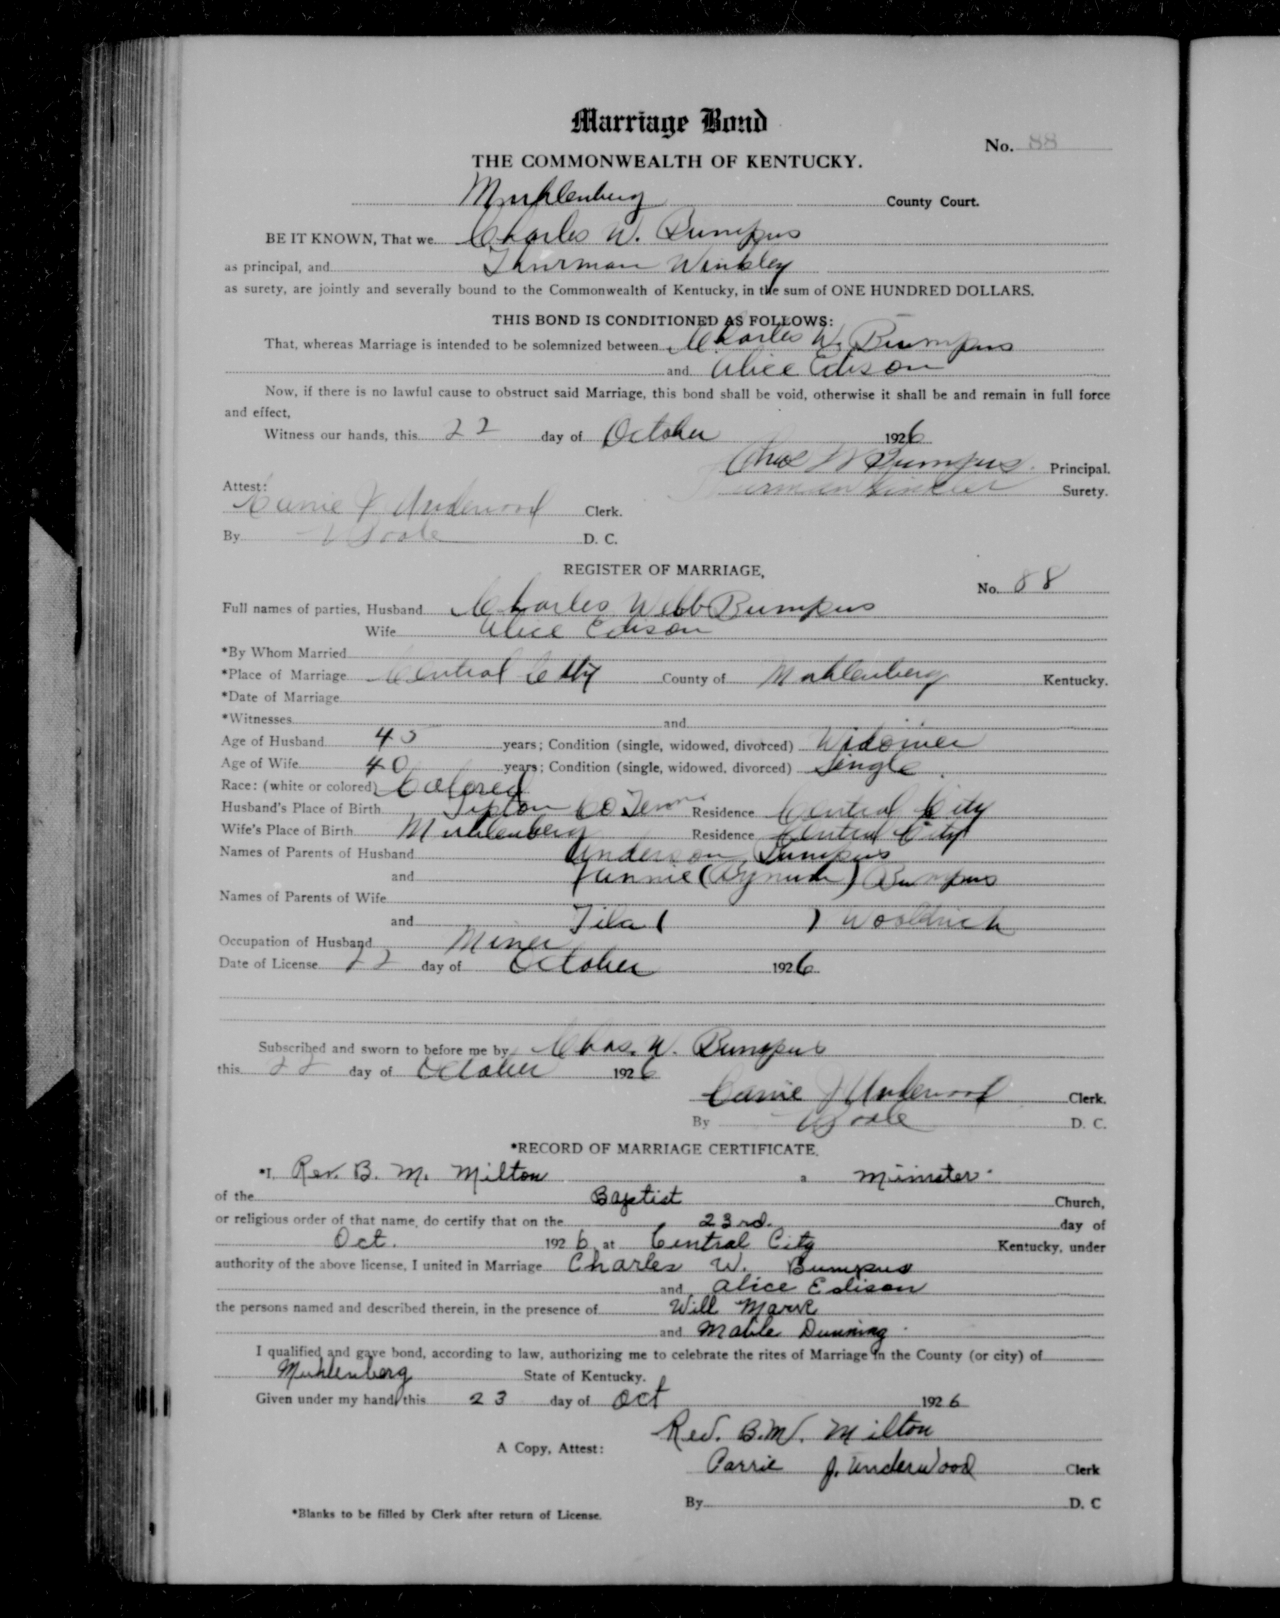 Marriage Bond
No. 88
THE COMMONWEALTH OF KENTUCKY.
Muhlenberg County Court.
BE IT KNOWN, That we Charles W. Bumpus
as principal, and Thurman Winkley
as surety, are jointly and severally bound to the Commonwealth of Kentucky, in the sum of ONE HUNDRED DOLLARS.
THIS BOND IS CONDITIONED AS FOLLOWS:
That, whereas Marriage is intended to be solemnized between Charles W. Bumpus
and Alice Edison
Now, if there is no lawful cause to obstruct said Marriage, this bond shall be void, otherwise it shall be and remain in full force
and effect,
Witness our hands, this 22 day of October 1926
Chas W Bumpus Principal.
Attest: Surety.
Carrie J Underwood Clerk.
By D. C.
REGISTER OF MARRIAGE,
No. 88
Full names of parties, Husband Charles Webb Bumpus
Wife Alice Edison
*By Whom Married
*Place of Marriage Central City County of Muhlenberg Kentucky.
*Date of Marriage
*Witnesses and
Age of Husband 45 years; Condition (single, widowed, divorced) Widower
Age of Wife 40 years; Condition (single, widowed, divorced) Single
Race: (white or colored) Colored
Husband's Place of Birth Tipton Co Tenn Residence Central City
Wife's Place of Birth Muhlenberg Residence Central City
Names of Parents of Husband Anderson Bumpus
and Fannie ( ) Bumpus
Names of Parents of Wife
and Tila ( ) Wooldrich
Occupation of Husband Miner
Date of License 22 day of October 1926
Subscribed and sworn to before me by Chas. W. Bumpus
this 22 day of October 1926
Carrie J Underwood Clerk.
By D. C.
*RECORD OF MARRIAGE CERTIFICATE.
*I, Rev. B. M. Milton a Minister
of the Baptist Church,
or religious order of that name, do certify that on the 23rd. day of
Oct. 1926 at Central City Kentucky, under
authority of the above license, I united in Marriage Charles W. Bumpus
and Alice Edison
the persons named and described therein, in the presence of Will Mark
and Mable Dunning
I qualified and gave bond, according to law, authorizing me to celebrate the rites of Marriage in the County (or city) of
Muhlenberg State of Kentucky.
Given under my hand, this 23 day of Oct 1926
Rev. B.M. Milton
A Copy, Attest:
Carrie J. Underwood Clerk
By D. C
*Blanks to be filled by Clerk after return of License.